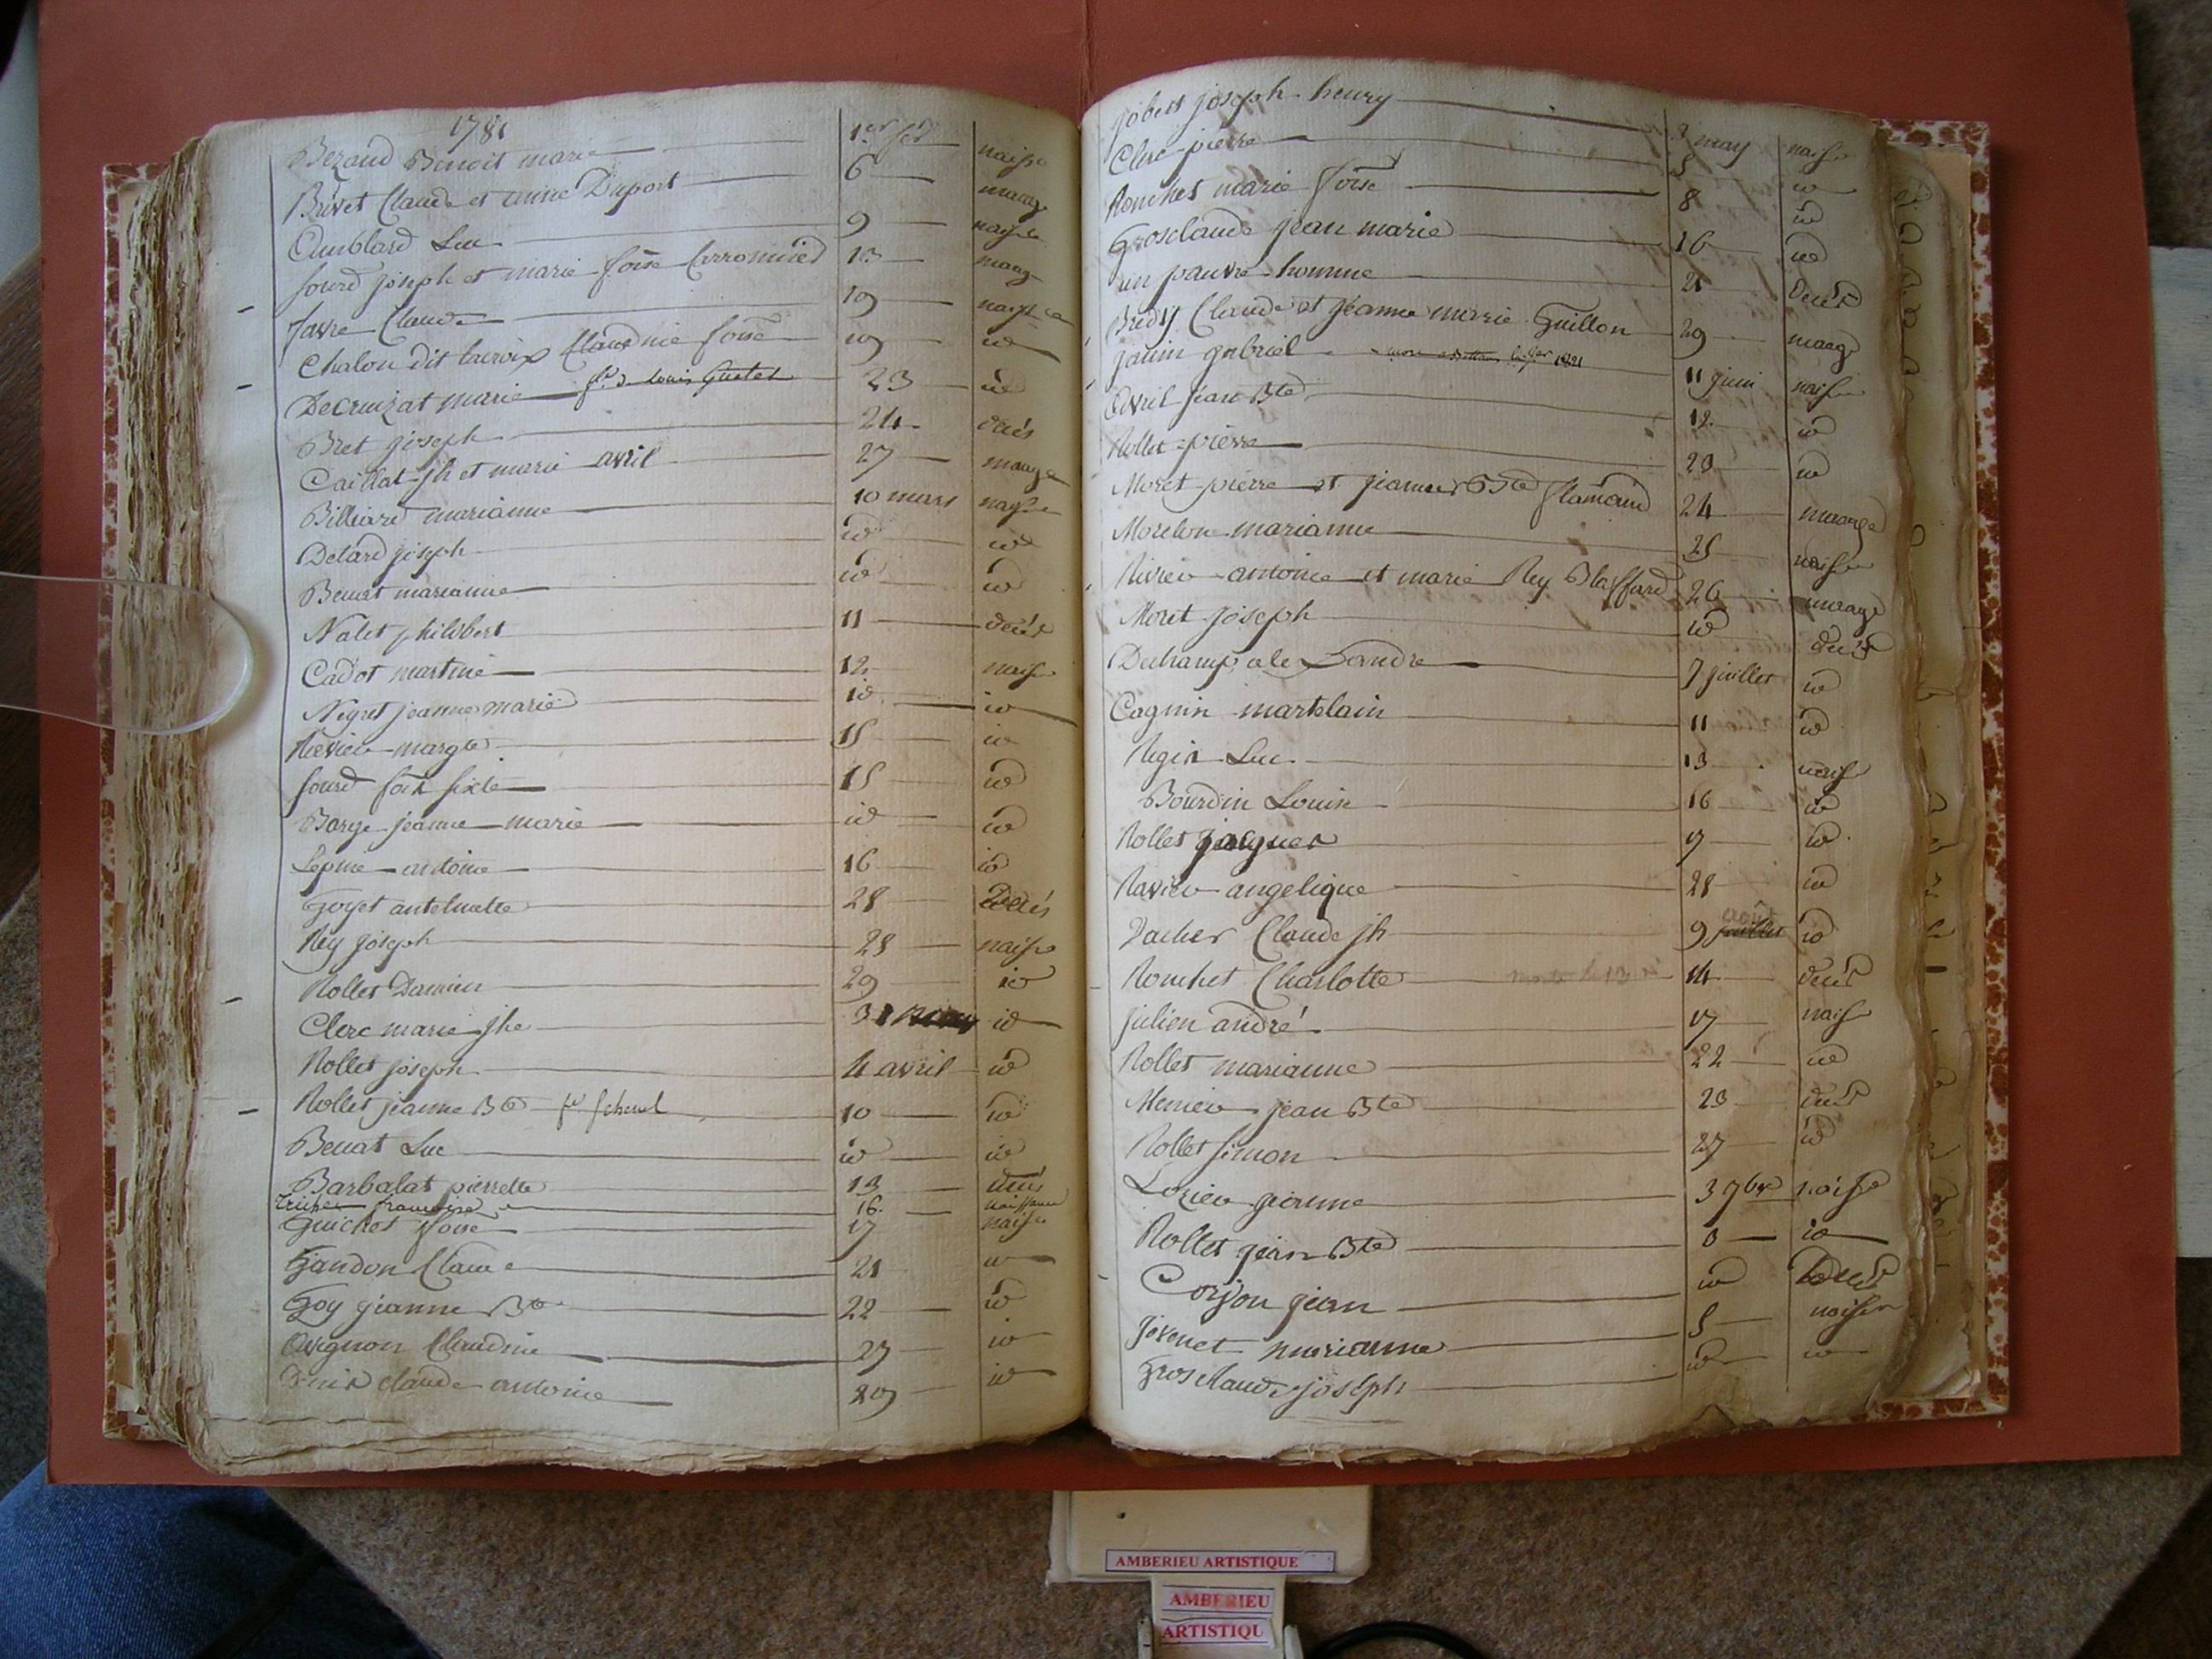 1781
Bezand Benoit marie 1.er fer naiss
Brivet Claude et anne Duport 6 maag
Amblard Luc 9 naiss
Sourd joseph et marie foise Carromied 13 maag
favre Claude 19 naissce
Chalon dit lacroix Claudnie foise 19 id
Decruizat marie fe de Louis Gustet 23 id
Bret joseph 24 décés
Caillat jh et marie avril 27 maage
Billiard marianne 10 mars naiss
Delard joseph id id
Benat marianne id id
Nalet philibert 11 décés
Cadot martine 12 naiss
Negret jeanne marie id id
Revieu margte 15 id
Sourd foix sixte 15 id
Barge jeanne marie id id
Lepine antoine 16 id
Goyet antelmette 28 décés
Rey joseph 28 naiss
Rollet Damien 29 id
Clerc marie jhe 31 id
Rollet joseph 4 avril id
Rollet jeanne Bte fe 10 id
Benat Luc id id
Barbalat pierrette 13 décés
françoise 16. naissance
Guichot foise 17 naiss
Gandon Claude 21 id
Goy jeanne Bte 22 id
Avignon Claudine 27 id
Claude antoine 29 id
jobert joseph henry 3 may naiss
Clerc pierre 5 id
Ronchet marie foise 8 id
Grosclaude jean marie 16 id
un pauvre homme 21 décés
Bredy Claude et jeanne marie Guillon 29 maage
janin gabriel 1821 11 juin naiss
Avril jean Bte 12 id
Rollet pierre 23 id
Moret pierre et jeanne Bte flamand 24 maage
Morelon marianne 25 naiss
Rivieu antoine et marie Rey Blaffard 26 maage
Moret joseph id décés
Dechamp alexandre 7 juillet id
Cagnin martelain 11 id
Regis Luc 13 naiss
Bourdin Louis 16 id
Rollet jacques 17 id
Ravieu angelique 28 id
Vacher Claude jh 9 juillet août id
Ronchet Charlotte 14 décés
julien andré 17 naiss
Rollet marianne 22 id
Menieu jean Bte 23 décés
Rollet simon 27 id
Lozieu jeanne 3 7bre naiss
Rollet jean Bte 3 id
Corjon jean id décés
marianne 5 naiss
Grosclaude joseph id id
AMBERIEU ARTISTIQUE
AMBERIEU
ARTISTIQU